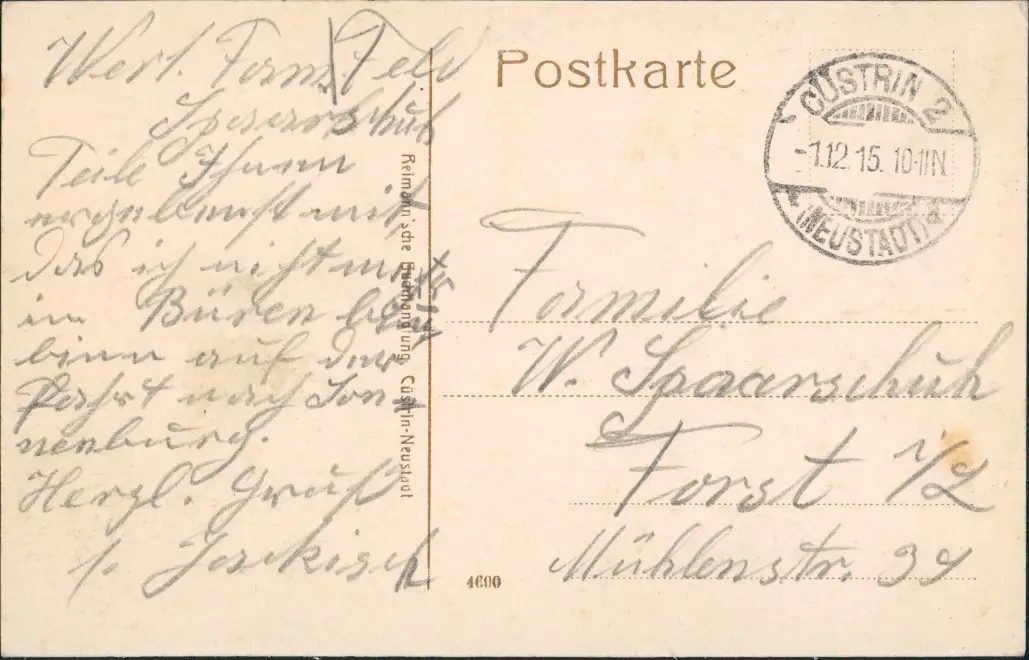 Wert. Fam. Feld
Spaarschuh
Teile Ihnen
ergebenst mit
das ich nicht mehr
in Büren
binn auf der
Fahrt nach Son-
nenburg.
Herzl. Gruß
Jaekisch
Reimann'sche Buchhandlung, Cüstrin-Neustadt
Postkarte
CÜSTRIN 2
-1.12.15. 10-11N
(NEUSTADT) a
Familie
W. Spaarschuh
Forst i/L
Mühlenstr. 39
4600